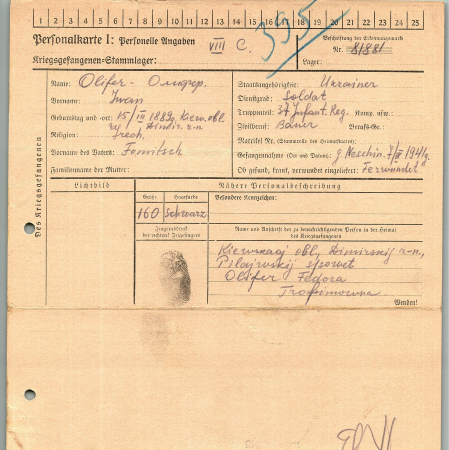 1 2 3 4 5 6 7 8 9 10 11 12 13 14 15 16 17 18 19 20 21 22 23 24 25
Personalkarte I: Personelle Angaben
VIII C.
395
Beschriftung der Erkennungsmarke
Nr. 81881
Kriegsgefangenen-Stammlager:
Lager:
Des Kriegsgefangenen
Name: Olifer - Олифер.
Vorname: Iwan
Geburtstag und -ort: 15/III 1889, Kiew. obl.
Religion: Grech.
Vorname des Vaters: Fomitsch
Familienname der Mutter:
Staatsangehörigkeit: Ukrainer
Dienstgrad: Soldat
Truppenteil: 37 Infant. Reg. Komp. usw.:
Zivilberuf: Bauer Berufs-Gr.:
Matrikel Nr. (Stammrolle des Heimatstaates):
Gefangennahme (Ort und Datum): g. Neschin. 1941g.
Ob gesund, krank, verwundet eingeliefert: Ferwundet
Lichtbild
Nähere Personalbeschreibung
Größe
Haarfarbe
Besondere Kennzeichen:
160 Schwarz
Fingerabdruck
des rechten Zeigefingers
Name und Anschrift der zu benachrichtigenden Person in der Heimat
des Kriegsgefangenen
Kiewskaj obl, Dimirskij r-n,
Pilajwskij sowet
Olifer Fedora
Trofimowna
Wenden!